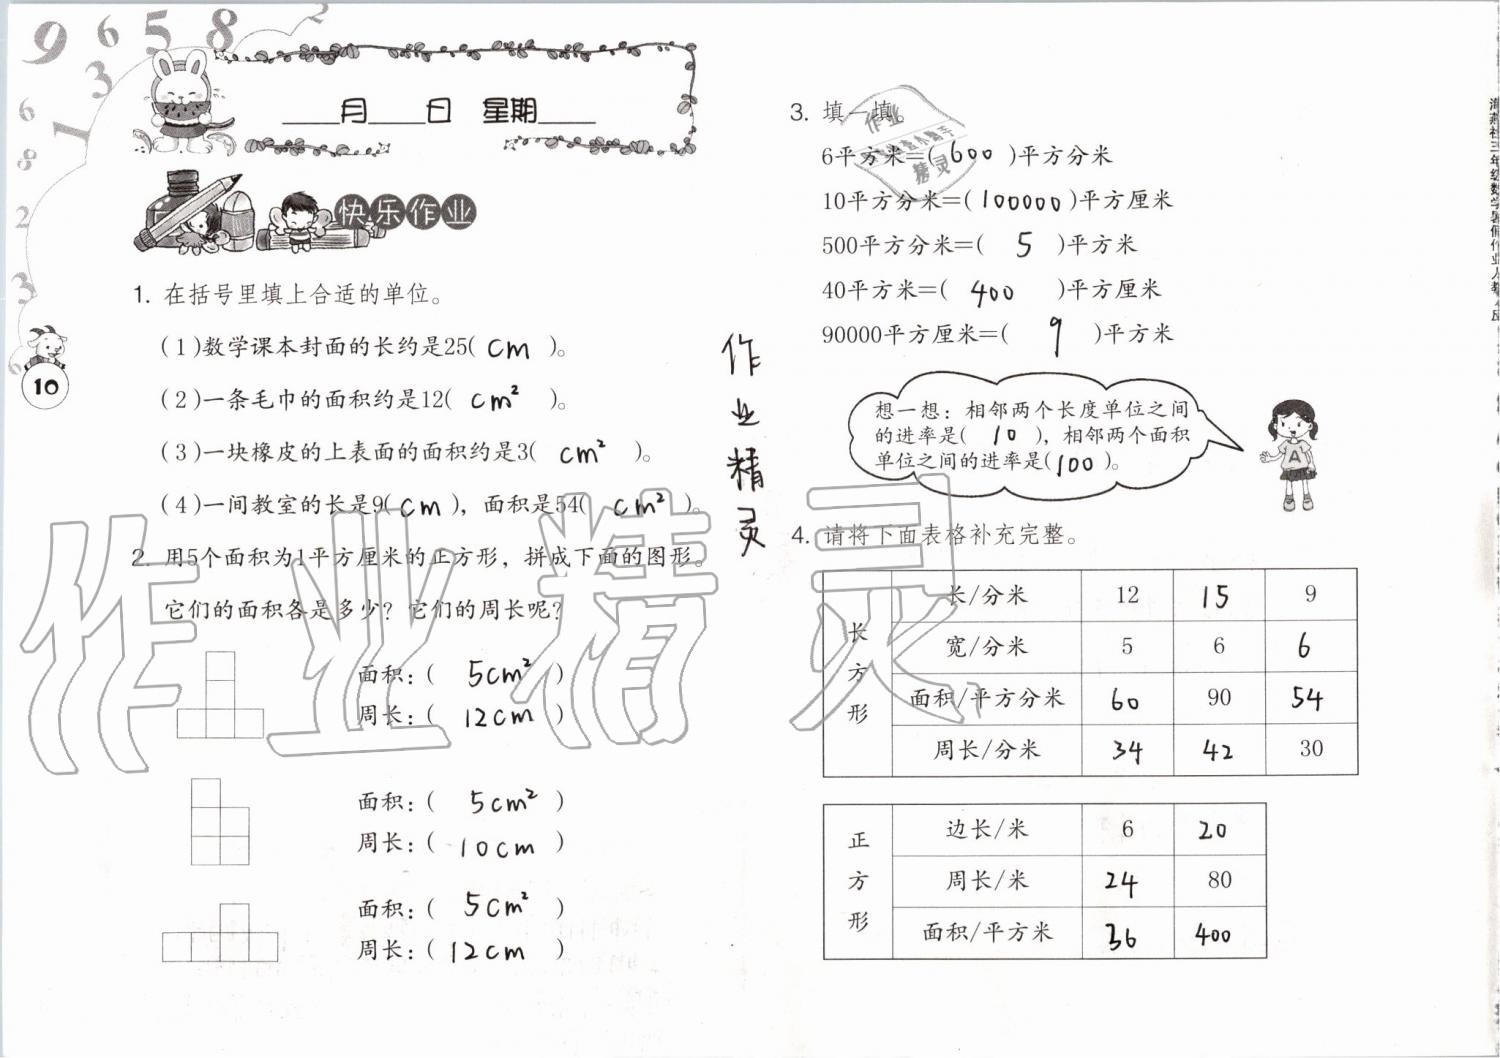 9 6 5 8 2
3
6 1
8
2
3
6
____月____日 星期____
快乐作业
10
1. 在括号里填上合适的单位。
(1)数学课本封面的长约是25( cm )。
(2)一条毛巾的面积约是12( cm² )。
(3)一块橡皮的上表面的面积约是3( cm² )。
(4)一间教室的长是9( cm ),面积是54( cm² )。
2. 用5个面积为1平方厘米的正方形,拼成下面的图形。
它们的面积各是多少?它们的周长呢?
面积:( 5cm² )
周长:( 12cm )
面积:( 5cm² )
周长:( 10cm )
面积:( 5cm² )
周长:( 12cm )
作业精灵
作业精灵
3. 填一填。
6平方米=( 600 )平方分米
10平方分米=( 100000 )平方厘米
500平方分米=( 5 )平方米
40平方米=( 400 )平方厘米
90000平方厘米=( 9 )平方米
想一想:相邻两个长度单位之间
的进率是( 10 ),相邻两个面积
单位之间的进率是( 100 )。
A
4. 请将下面表格补充完整。
长方形
长/分米 12 15 9
宽/分米 5 6 6
面积/平方分米 60 90 54
周长/分米 34 42 30
正方形
边长/米 6 20
周长/米 24 80
面积/平方米 36 400
作业
精灵